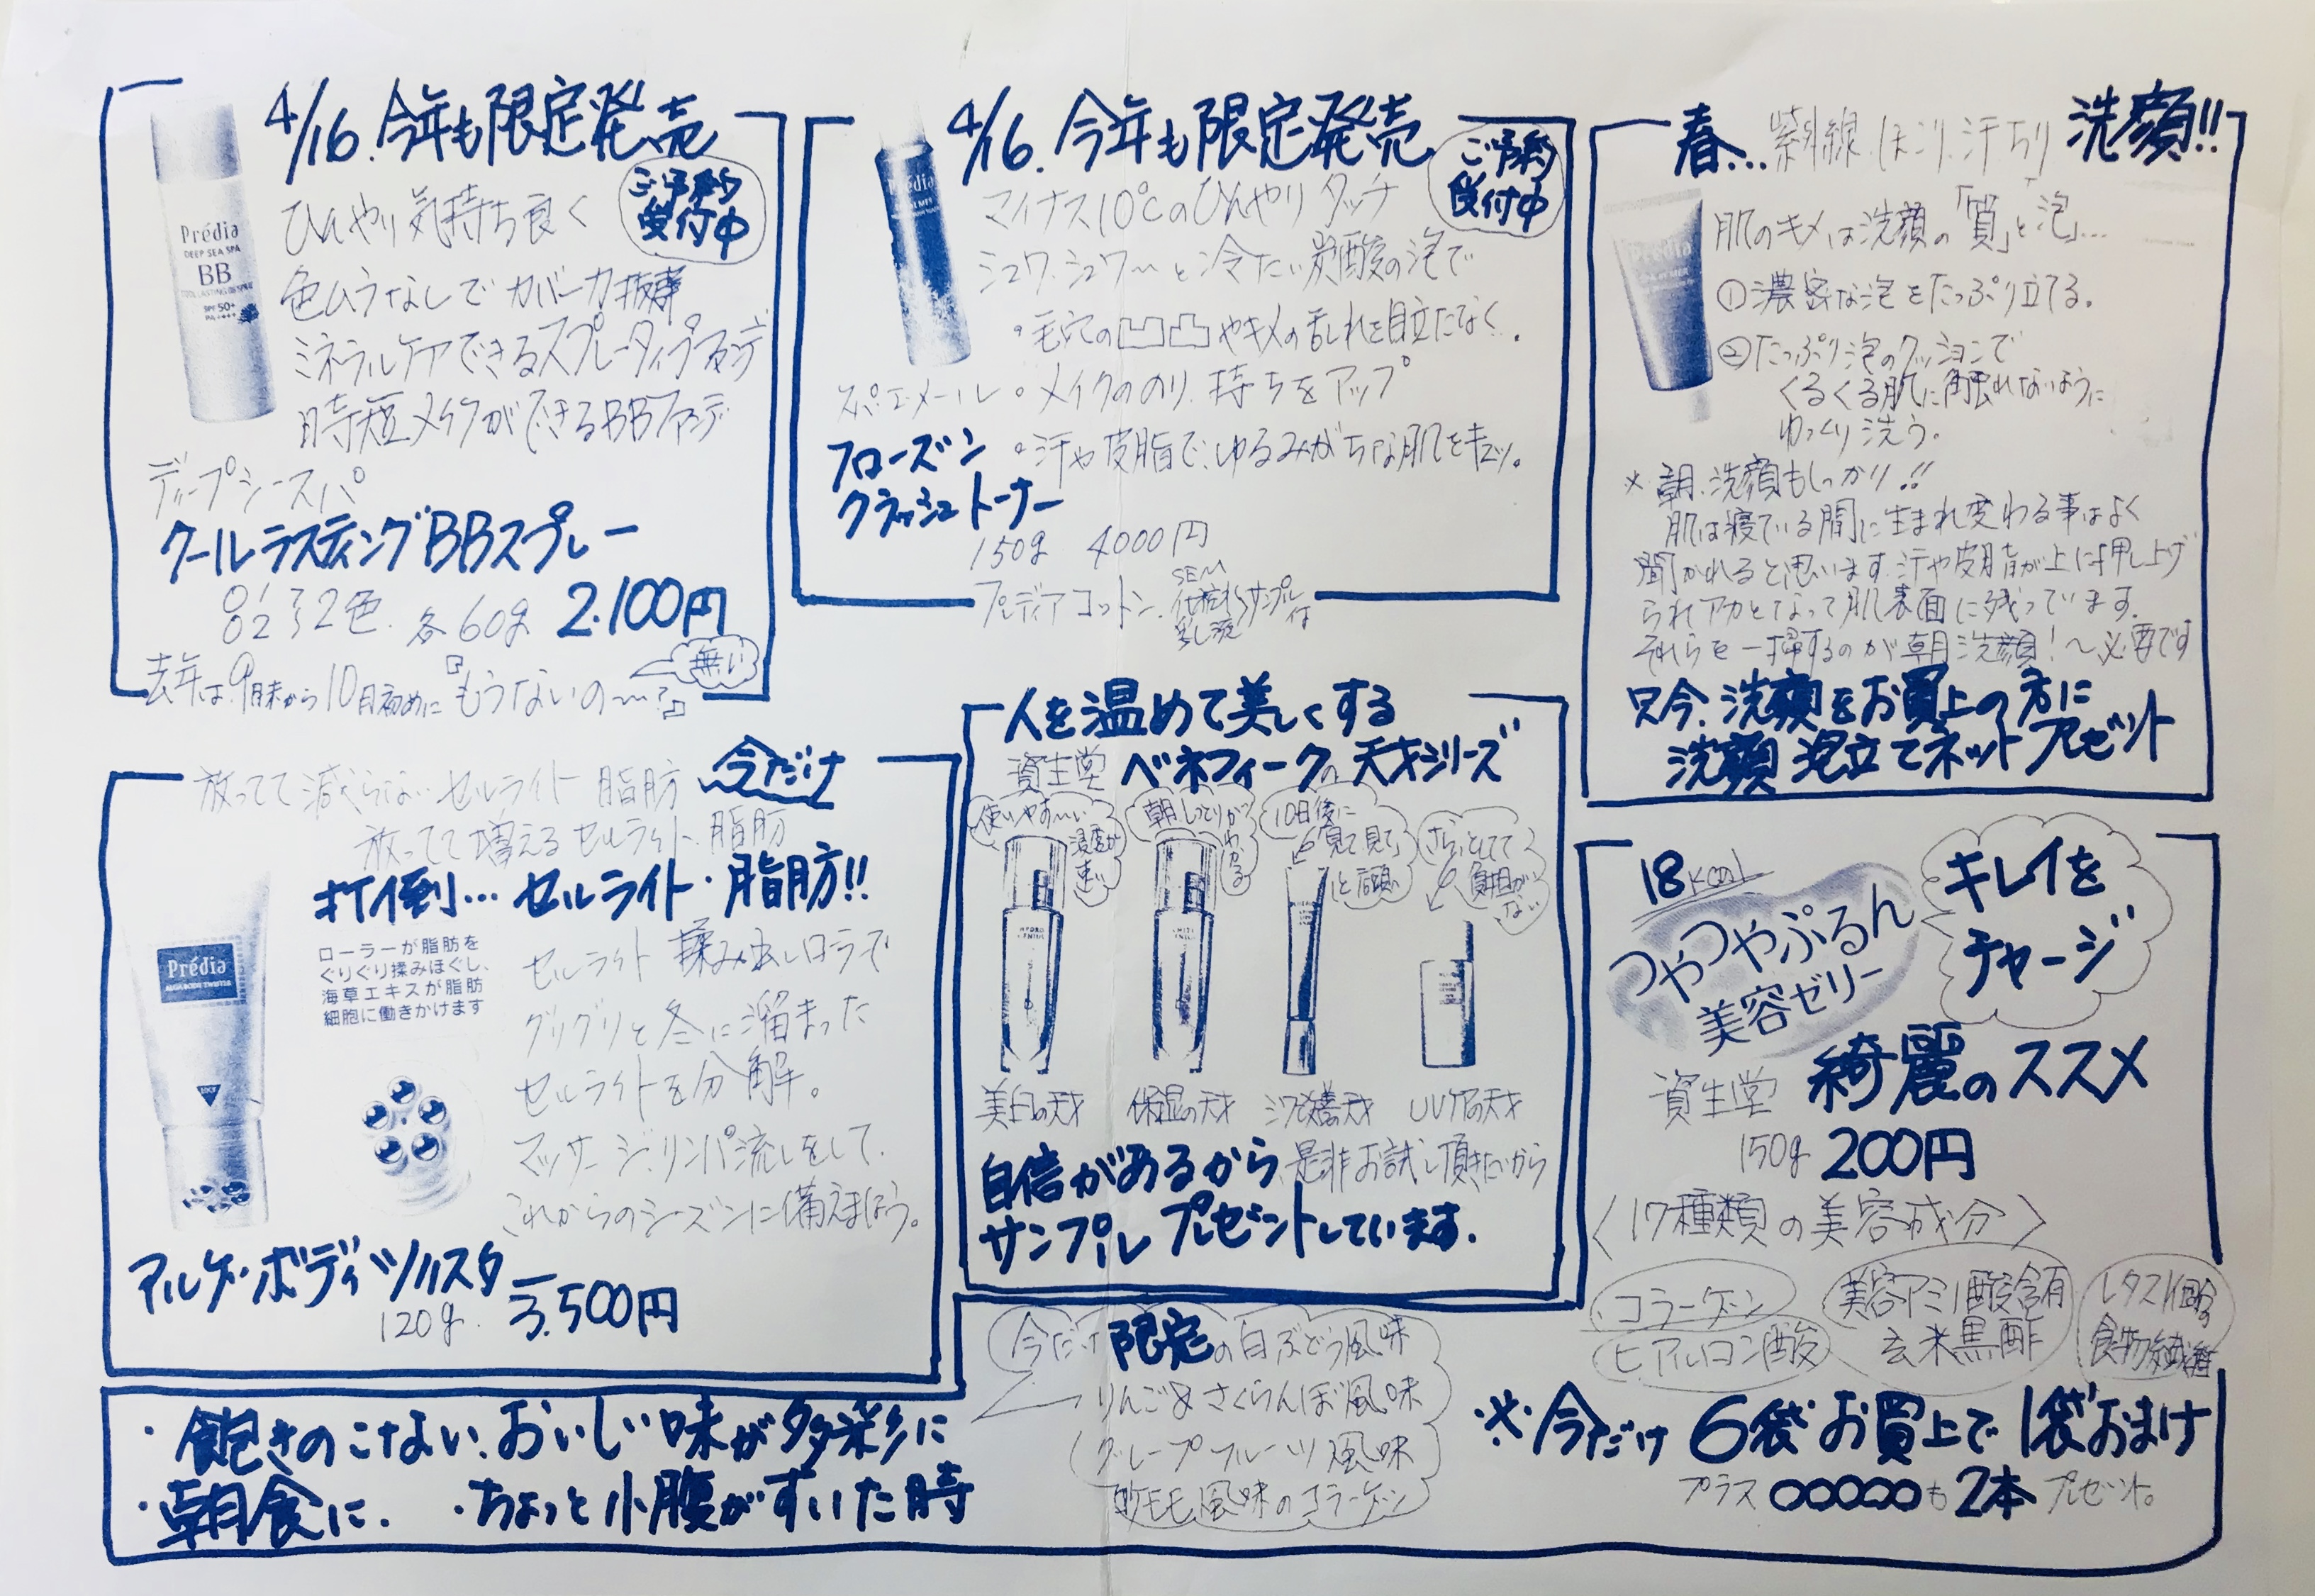 4/16.今年も限定発売
ご予約
受付中
ひんやり気持ち良く
色ムラなしでカバー力抜群
ミネラルケアできるスプレータイプファンデ
時短メイクができるBBファンデ
Prédia
DEEP SEA SPA
BB
SPF 50+
PA++++
ディープシースパ
クールラスティングBBスプレー
2色 各60g 2.100円
去年は9月末から10月初めに『もうないの〜?』
無い
4/16.今年も限定発売
ご予約
受付中
Prédia
マイナス10℃のひんやりタッチ
シュワ.シュワ〜と冷たい炭酸の泡で
・毛穴の凹凸やキメの乱れを目立たなく.
スパ・エ・メール ・メイクののり.持ちをアップ
フローズン ・汗や皮脂で、ゆるみがちな肌をキュッ。
クラッシュトーナー
150g 4000円
プレディアコットン.
SEM
化粧水
乳液
サンプル付
春...紫外線.ほこり.汗.ちり 洗顔!!
Prédia
肌のキメは洗顔の「質」と「泡」...
①濃密な泡をたっぷり立てる。
②たっぷり泡のクッションで
くるくる肌に触れないように
ゆっくり洗う。
※朝.洗顔もしっかり!!
肌は寝ている間に生まれ変わる事はよく
聞かれると思います.汗や皮脂が上に押し上げ
られアカとなって肌表面に残っています.
それらを一掃するのが朝洗顔!〜必要です
只今.洗顔をお買上の方に
洗顔 泡立てネットプレゼント
放ってて減らないセルライト 脂肪 今だけ
放ってて増えるセルライト.脂肪
打倒...セルライト・脂肪!!
Prédia
ローラーが脂肪を
ぐりぐり揉みほぐし、
海草エキスが脂肪
細胞に働きかけます
セルライト揉み出しローラーで
グリグリと冬に溜まった
セルライトを分解。
マッサージ.リンパ流しをして.
これからのシーズンに備えましょう。
アルゲ・ボディツイスター
120g. 3.500円
人を温めて美しくする
資生堂 ベネフィークの天才シリーズ
使いやす〜い
浸透が
速い
朝しっとりが
わかる
10日後に
「見て見て」
と言う顔
さらっとしてて
負担が
ない
美白の天才 保湿の天才 シワ改善天才 UVケアの天才
自信があるから.是非お試し頂きたいから
サンプルプレゼントしています.
18kcal
つやつやぷるん
美容ゼリー
キレイを
チャージ
資生堂 綺麗のススメ
150g 200円
〈17種類の美容成分〉
コラーゲン
ヒアルロン酸
美容アミノ酸含有
玄米黒酢
レタス1個分の
食物繊維
今だけ限定の白ぶどう風味
りんご&さくらんぼ風味
グレープフルーツ風味
風味のコラーゲン
・飽きのこない、おいしい味が多彩に
・朝食に. ・ちょっと小腹がすいた時
※今だけ 6袋お買上で1袋おまけ
プラス○○○○○も2本プレゼント。